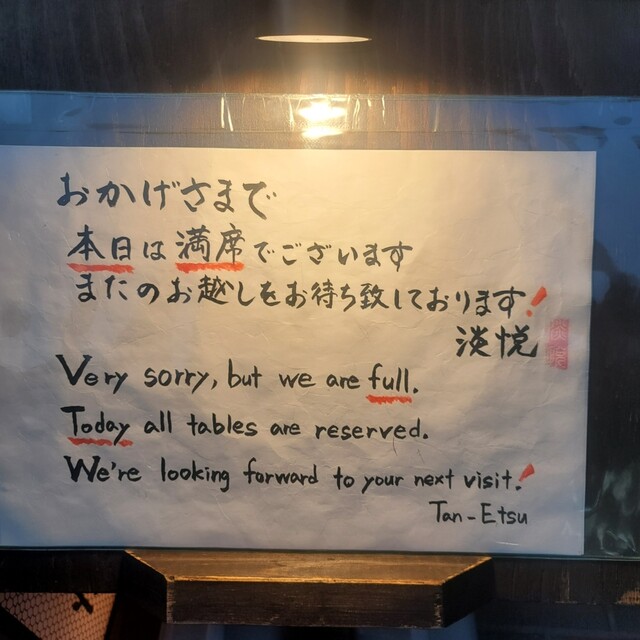 おかげさまで
本日は満席でございます
またのお越しをお待ち致しております!
淡悦
Very sorry, but we are full.
Today all tables are reserved.
We're looking forward to your next visit!
Tan-Etsu